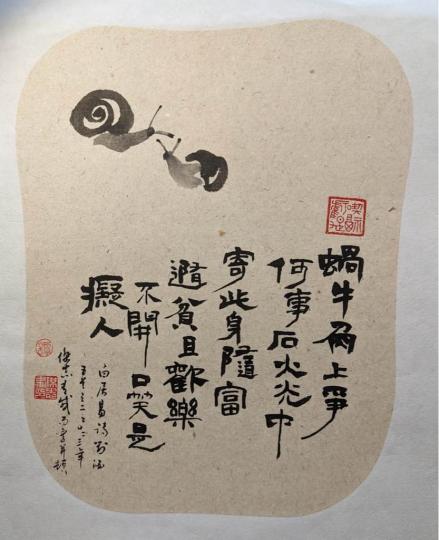 蝸牛角上爭
何事石火光中
寄此身隨富
隨貧且歡樂
不開口笑是
癡人
白居易詩對酒